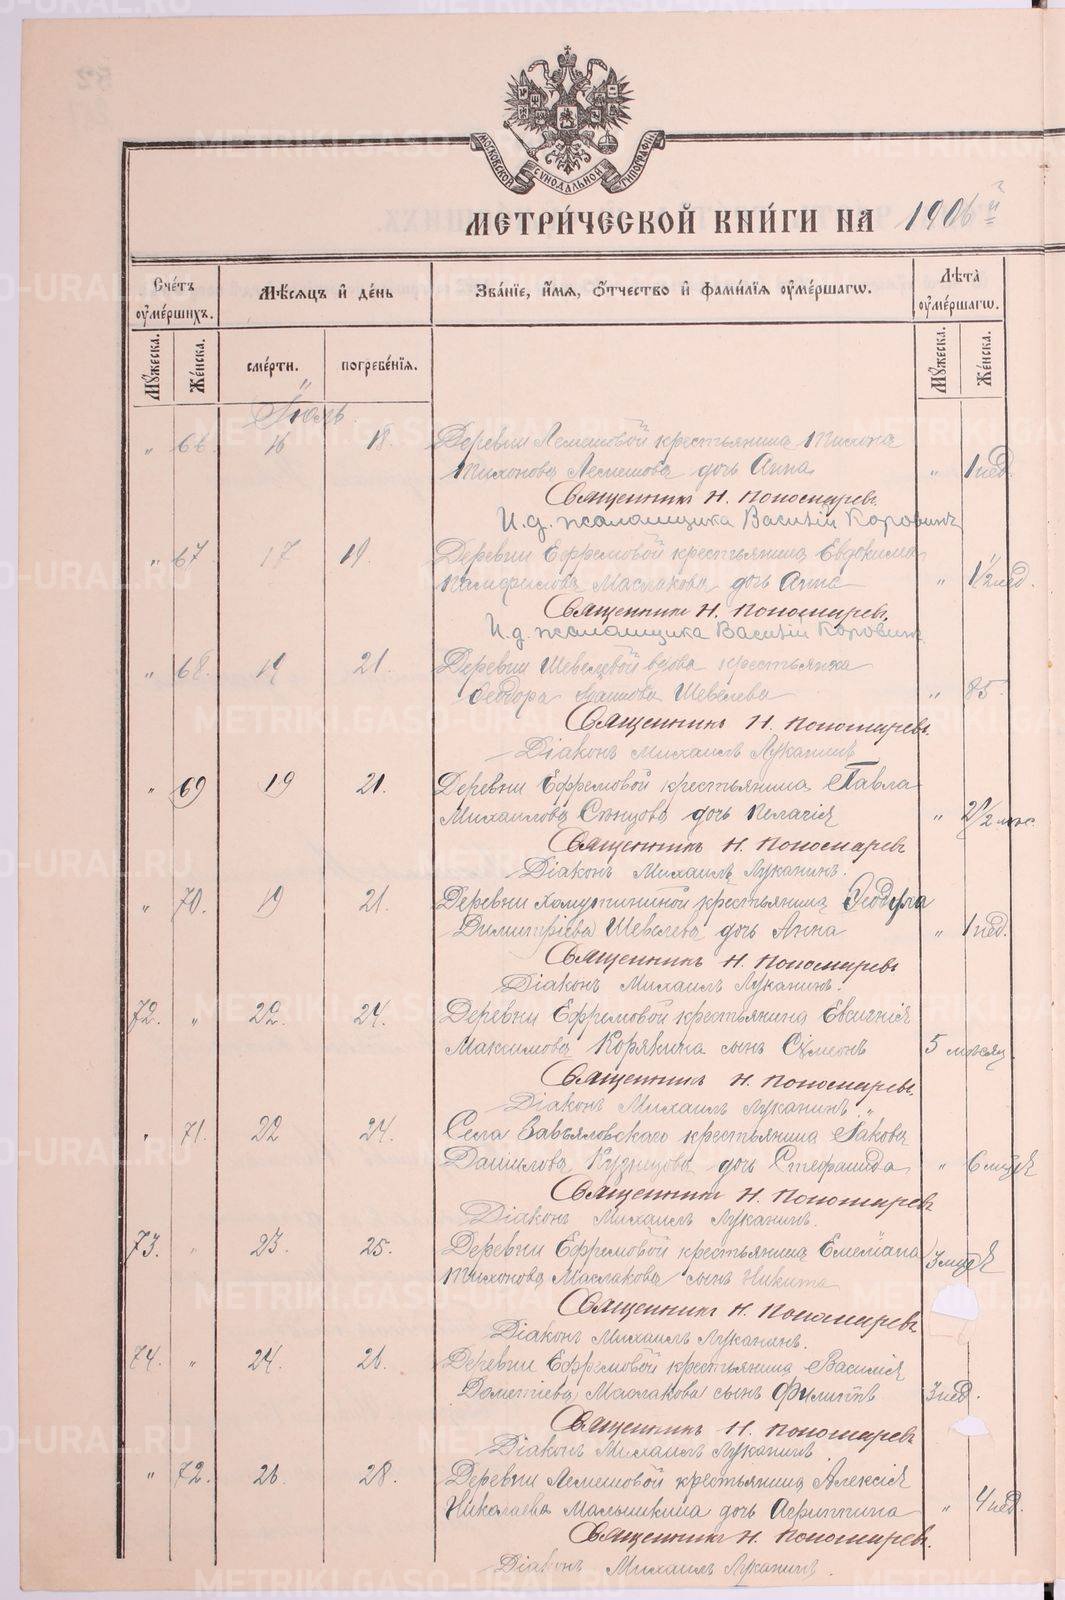 МОСКОВСКОЙ СѴНОДАЛЬНОЙ ТИПОГРАФІИ
МЕТРИ́ЧЕСКОЙ КНИ́ГИ НА 1906 й
Сче́тъ ᲂумершихъ.
Мѣ́сяцъ и́ де́нь
Зва́нїе, и́мя, ѻ҆́тчество и҆ фами́лїя ᲂумершагѡ.
Лѣта̀ ᲂумершагѡ.
Мꙋ́жеска. Же́нска. сме́рти. погребе́нїя. Мꙋ́жеска. Же́нска.
Іюль
" 66. 16 18. Деревни Лемешовой крестьянина Тихона
Тихонова Лемешова дочь Анна " 1 нед.
Священникъ Н. Пономаревъ.
И. д. псаломщика Василій Коровинъ
" 67 17 19. Деревни Ефремовой крестьянина Евдокима
Памфилова Маслакова дочь Анна " 1½ нед.
Священникъ Н. Пономаревъ.
И. д. псаломщика Василій Коровинъ
" 68. 19 21. Деревни Шевелевой вдова крестьянка
Ѳеодора Шевелева " 85.
Священникъ Н. Пономаревъ.
Діаконъ Михаилъ Луканинъ
" 69 19 21. Деревни Ефремовой крестьянина Павла
Михаилова Сѣнцова дочь Пелагія " 2½ мѣс.
Священникъ Н. Пономаревъ
Діаконъ Михаилъ Луканинъ.
" 70. 19 21. Деревни Хомутининой крестьянина Ѳеодула
Димитріева Шевелева дочь Анна " 1 нед.
Священникъ Н. Пономаревъ
Діаконъ Михаилъ Луканинъ.
72. " 22. 24. Деревни Ефремовой крестьянина Евсигнія
Максимова Корякина сынъ Сѵмеонъ 5 мѣсяц.
Священникъ Н. Пономаревъ.
Діаконъ Михаилъ Луканинъ.
" 71. 22 24. Села Завьяловскаго крестьянина Іакова
Даніилова Кузнецова дочь Стефанида " 6
Священникъ Н. Пономаревъ
Діаконъ Михаилъ Луканинъ.
73. " 23. 25. Деревни Ефремовой крестьянина Емеліана
Тихонова Маслакова сынъ Никита 3
Священникъ Н. Пономаревъ
Діаконъ Михаилъ Луканинъ.
74. " 24. 26. Деревни Ефремовой крестьянина Василія
Дометіева Маслакова сынъ Филиппъ 3 нед.
Священникъ Н. Пономаревъ
Діаконъ Михаилъ Луканинъ
" 72. 26 28. Деревни Лемешовой крестьянина Алексія
Николаева Малышкина дочь Агриппина " 4 нед.
Священникъ Н. Пономаревъ.
Діаконъ Михаилъ Луканинъ.
METRIKI.GASO-URAL.RU